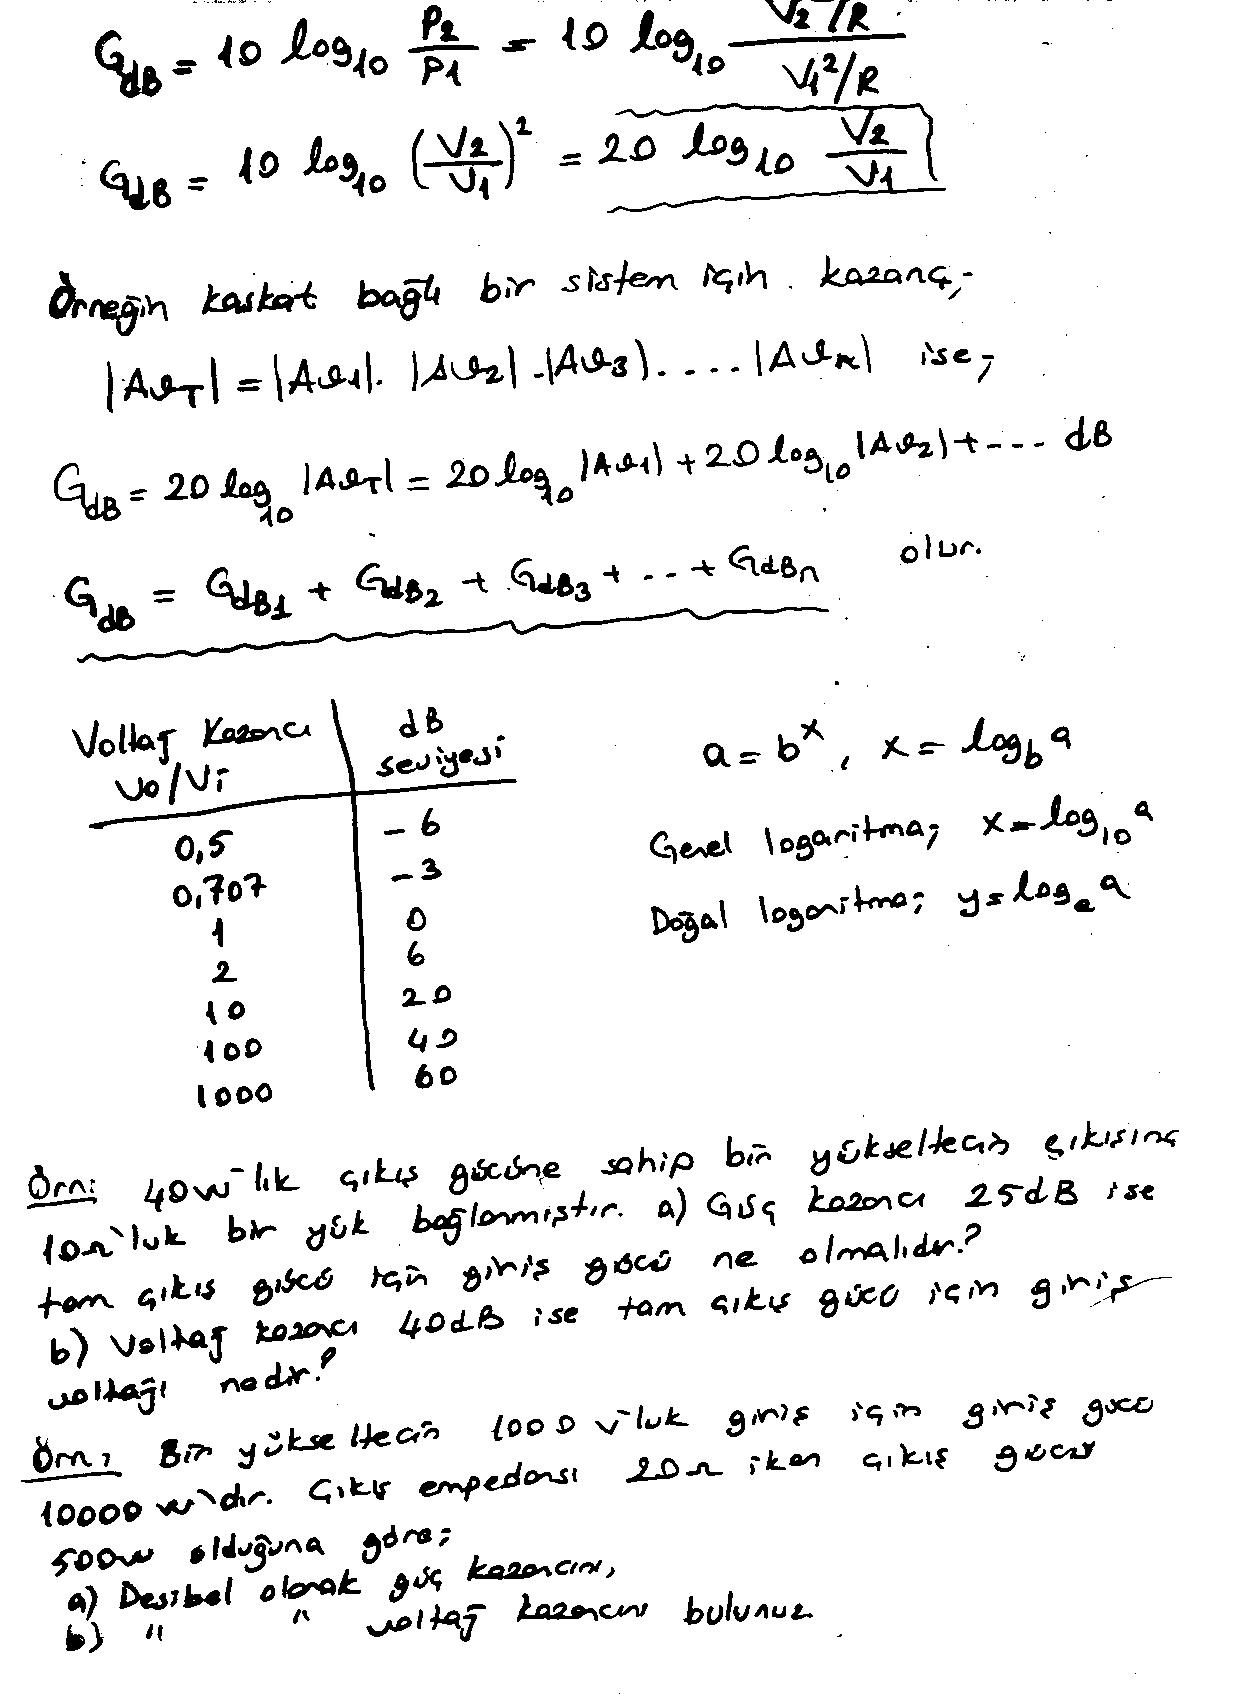 G_dB = 10 log₁₀ P2/P1 = 10 log₁₀ (V2²/R)/(V1²/R)
G_dB = 10 log₁₀ (V2/V1)² = 20 log₁₀ V2/V1
Örneğin kaskat bağlı bir sistem için kazanç,-
|AϑT| = |Aϑ1|. |Aϑ2| .|Aϑ3|. ... |Aϑn| ise,
G_dB = 20 log₁₀ |AϑT| = 20 log₁₀ |Aϑ1| + 20 log₁₀ |Aϑ2| + --- dB
G_dB = G_dB1 + G_dB2 + G_dB3 + -.. + G_dBn olur.
Voltaj Kazancı Vo/Vi | dB seviyesi
0,5 | -6
0,707 | -3
1 | 0
2 | 6
10 | 20
100 | 40
1000 | 60
a = b^x, x = log_b a
Genel logaritma; x = log₁₀ a
Doğal logaritma; y = log_e a
Örn: 40w'lık çıkış gücüne sahip bir yükseltecin çıkışına
10Ω'luk bir yük bağlanmıştır. a) Güç kazancı 25dB ise
tam çıkış gücü için giriş gücü ne olmalıdır?
b) Voltaj kazancı 40dB ise tam çıkış gücü için giriş
voltajı nedir?
Örn: Bir yükseltecin 1000 v'luk giriş için giriş gücü
10000 w'dır. Çıkış empedansı 20Ω iken çıkış gücü
500w olduğuna göre;
a) Desibel olarak güç kazancını,
b) " " voltaj kazancını bulunuz.